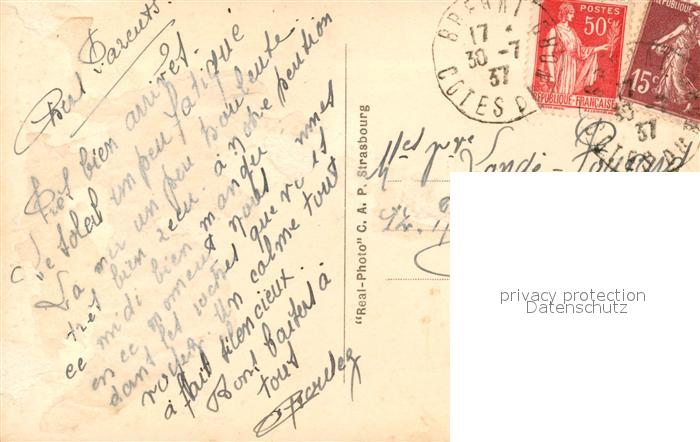 Chers Parents.
Très bien arrivés.
Le soleil un peu fatigué
La mer un peu houleuse
très bien reçu. à notre pention
ce midi bien mangé
en ce moment nous sommes
dans les roches que vous
voyez. Un calme tout
à fait silencieux.
Bons baisers à
tous
"Real-Photo" C. A. P. Strasbourg
17 *
30 -7
37
COTES D
POSTES
50c
REPUBLIQUE FRANÇAISE
15c
37
privacy protection
Datenschutz